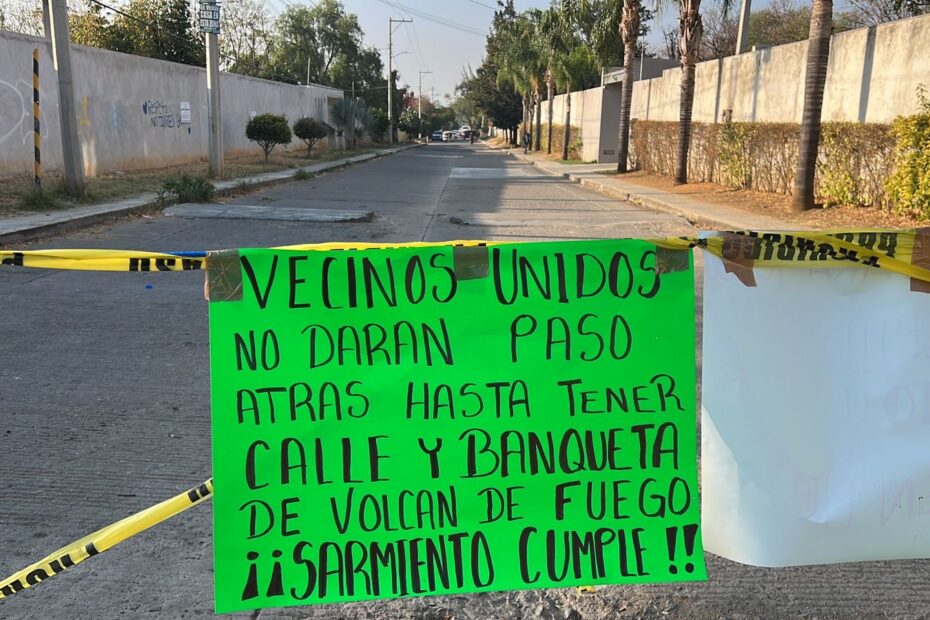 VECINOS UNIDOS
NO DARAN PASO
ATRAS HASTA TENER
CALLE Y BANQUETA
DE VOLCAN DE FUEGO
¡¡SARMIENTO CUMPLE!!